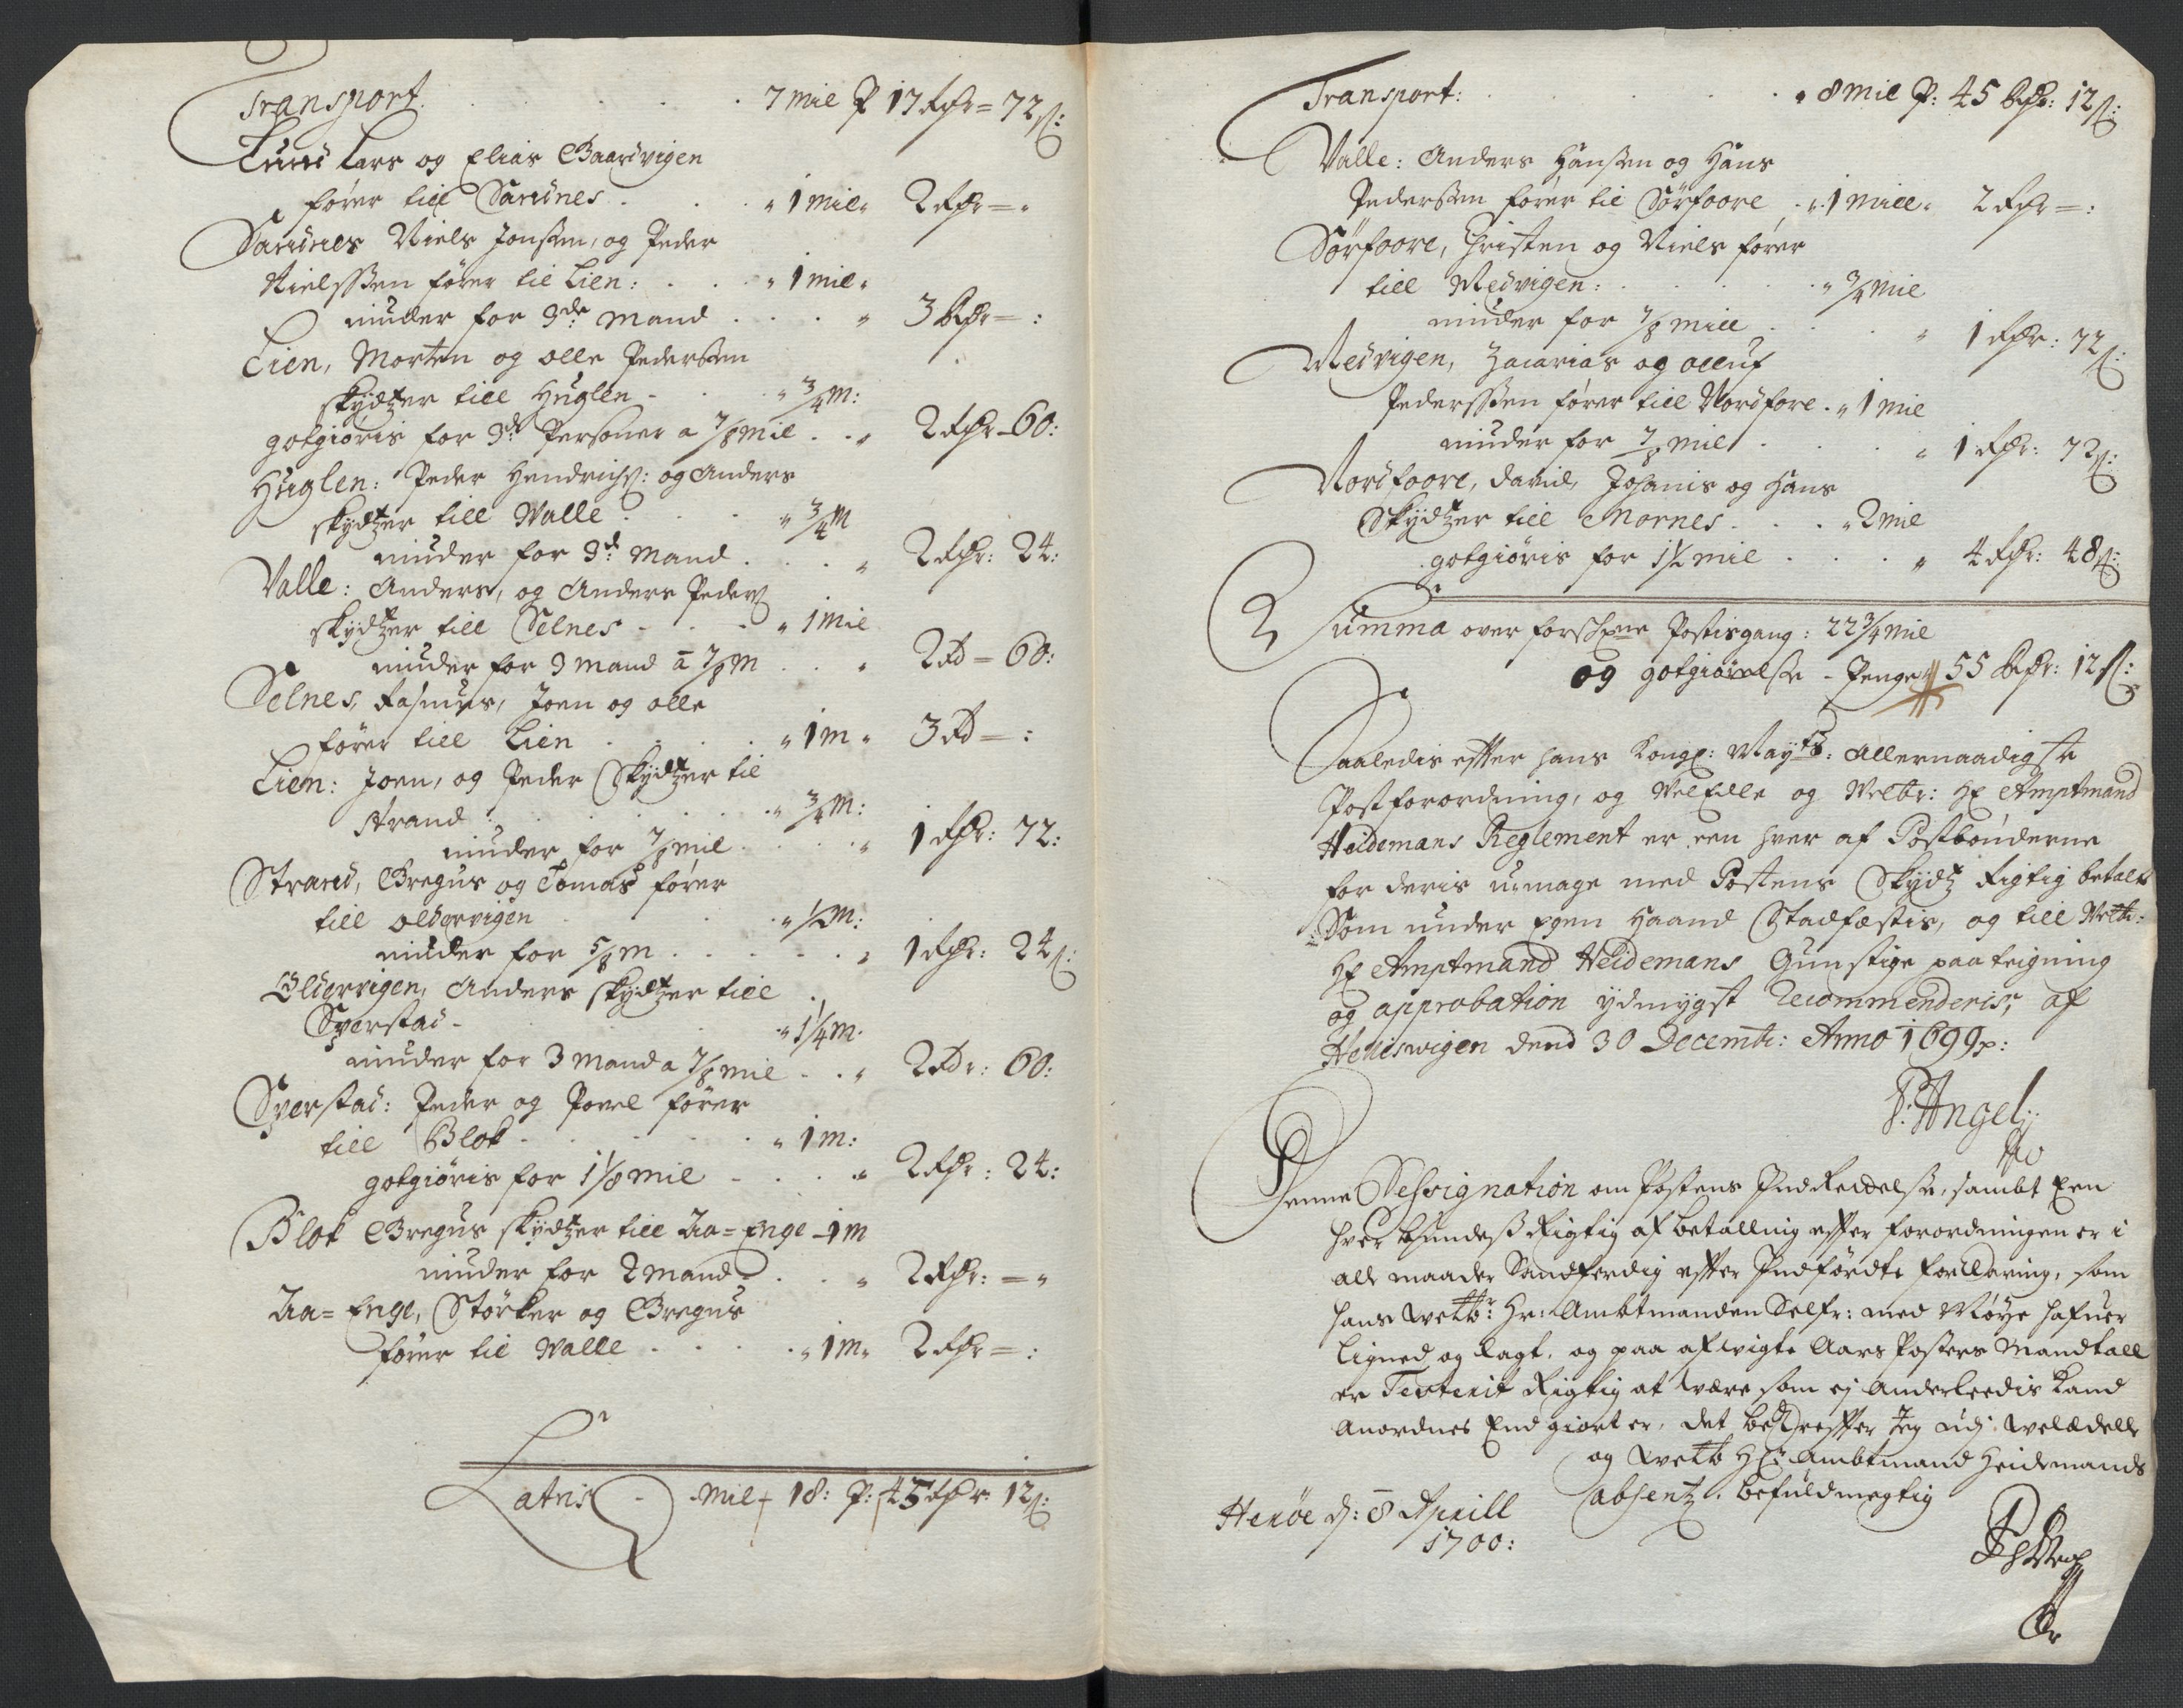 Transport. . . . . . 7 mil P 17 Rdr = 72 ß:
Lund Lars og Elias Gaardvigen
fører till Sandnes . . . " 1 mil " 2 Rdr = "
Sandnes Niels Jonssen, og Peder
Nielssen fører til Lien: . . " 1 mil "
niuder for 3de Mand . . . " 3 Rdr = :
Lien, Morten og Olle Pederssen
skydtzer till Huglen - . " 3/4 M:
gotgiøris for 3de Personer a 7/8 mil . . " 2 Rdr - 60:
Huglen: Peder Hendrichß: og Anders
skydtzer till Walle . . . " 3/4 M
niuder for 3de Mand . . . " 2 Rdr: 24:
Valle: Anders, og Anders Pederß
skydtzer till Selnes - . - " 1 mil
niuder for 3 mand a 7/8 M . . . " 2 Rd = 60:
Selnes, Rasmus, Joen og Olle
fører till Lien . . . " 1 m " 3 Rd = :
Lien: Joen, og Peder Skydtzer til
Strand : . . . . " 3/4 M:
niuder for 7/8 mil . . . . " 1 Rdr: 72:
Strand, Gregus og Tomas fører
till Oldervigen . . . " 1/2 M:
niuder for 5/8 m . . . . . " 1 Rdr: 24 ß:
Oldervigen, Anders skydtzer till
Sverstad - . . . " 1 1/4 m.
niuder for 3 Mand a 7/8 mil . . " 2 Rdr: 60:
Sverstad: Peder og Povel fører
till Blok - . . . . " 1 m:
gotgiøris for 1 1/8 mil - . . . " 2 Rdr: 24:
Blok Gregus skydtzer till Aa = Enge - 1 m
niuder for 2 Mand . . . " 2 Rdr: = "
Aa = Enge, Størker og Gregus
fører til Walle . . . . " 1 m " 2 Rdr = :
Latris - . Mil 18: P: 45 Rdr 12 ß:
Transport: . . . . . " 8 Mil P: 45 Rdr: 12 ß:
Valle: Anders Hanssen og Hans
Pederssen fører til Sørfoore . " 1 miil " 2 Rdr = :
Sørfoore, Christen og Niels fører
till Medvigen: . . . . " 3/4 Mil
niuder for 7/8 miil . . . " 1 Rdr: 72 ß:
Medvigen, Zacarias og Olluf
Pederssen fører till Nordfore . " 1 mil
niuder for 7/8 mil . . . " 1 Rdr: 72 ß:
Nordfoore, David, Johanis og Hans
Skydtzer till Mornes . . . " 2 mil
gotgiøris for 1 1/2 mil . . . " 4 Rdr: 48 ß:
Summa over forschr:ne Postisgang: 22 3/4 Mil
og gotgiørelse - Penge 55 Rdr: 12 ß:
Saaledis effter hans Kongl: May:ts: Allernaadigste
Postforordning, og Velædle og Welbr: Hr Amptmand
Heidemans Reglement er een hver af Postbønderne
for deris umage med Postens Skydtz Rigtig betalt
Som under Egen Haand Stadfæstis, og till Welb:
Hr Amptmand Heidemans Gunstige paateigning
og approbation ydmygst Recommenderis, af
Helliswigen dend 30 Decemb: Anno 1699 p:
P: Angel
Denne Designation om Postens Indrettelse, sambt Een
hver bundes Rigtig afbetalling effter forordningen er i
alle maader Sandferdig effter Indførdte forklaring, som
hans welb:r Hr: Ambtmanden Selfr: med Nøye hafuer
Ligned og lagt, og paa afvigte Aars Posters Mandtall
er Testerit Rigtig at være som ej Anderleedis kand
Anordnes End giort er, det bekreffter Jeg udj welædelle
og welb Hr: Ambtmand Heidemands
absentz, befuldmegtig
Herøe d: 8 Aprill
1700: